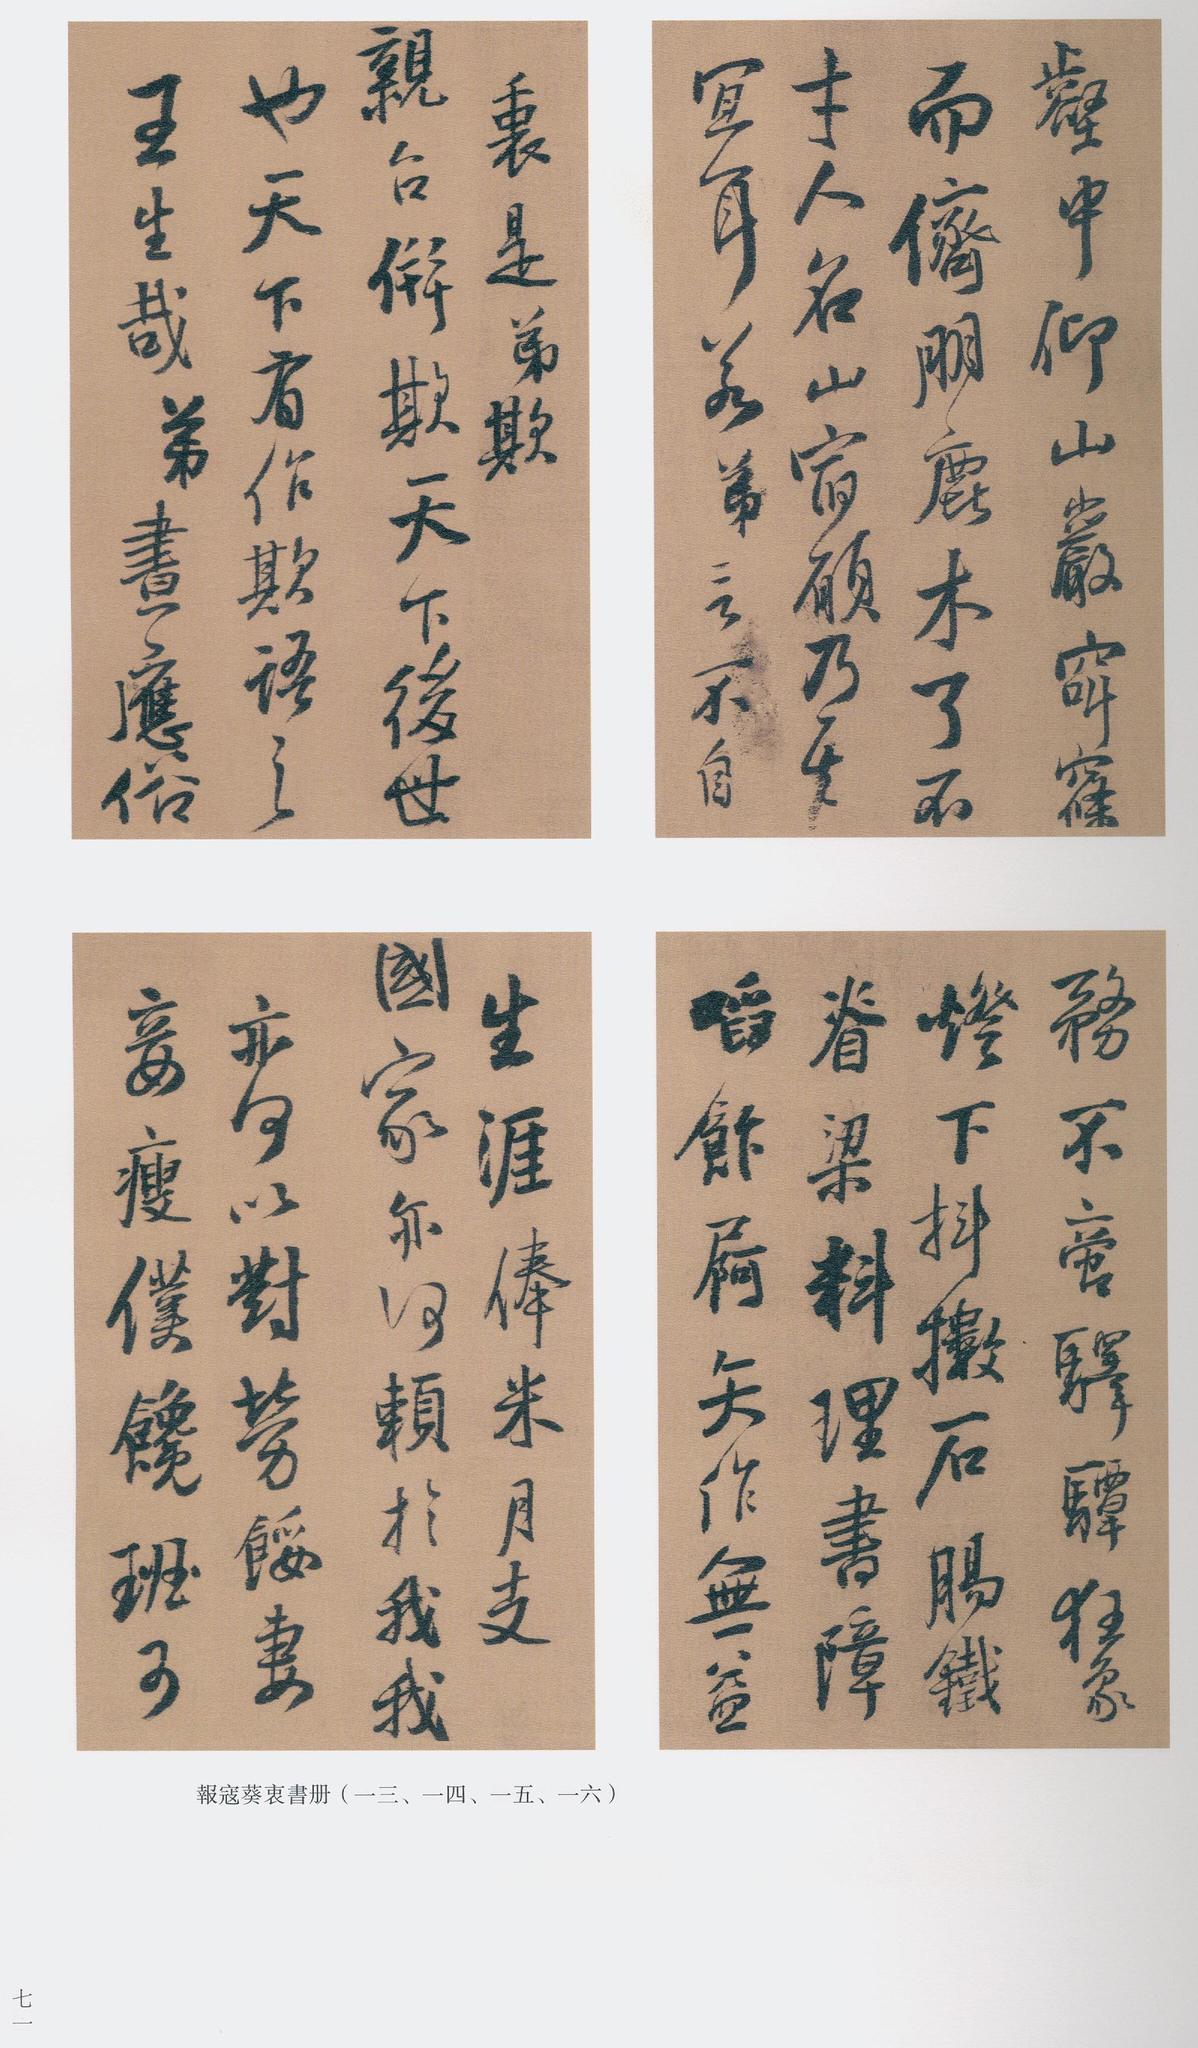 壑中仰山巖窾窱
而儕朋鹿木了不
才人名山宿願乃其
宜耳若弟言不自
裏是弟欺
親台併欺天下後世
也天下有作欺語之
王生哉弟晝應俗
務不啻驛驔狂象
燈下抖擻石腸鐵
脊梁料理書障
飽飯屙矢作無益
生涯俸米月支
國家亦何賴於我我
亦何以對勞餒妻
妾瘦僕饞班可
報寇葵衷書册（一三、一四、一五、一六）
七一